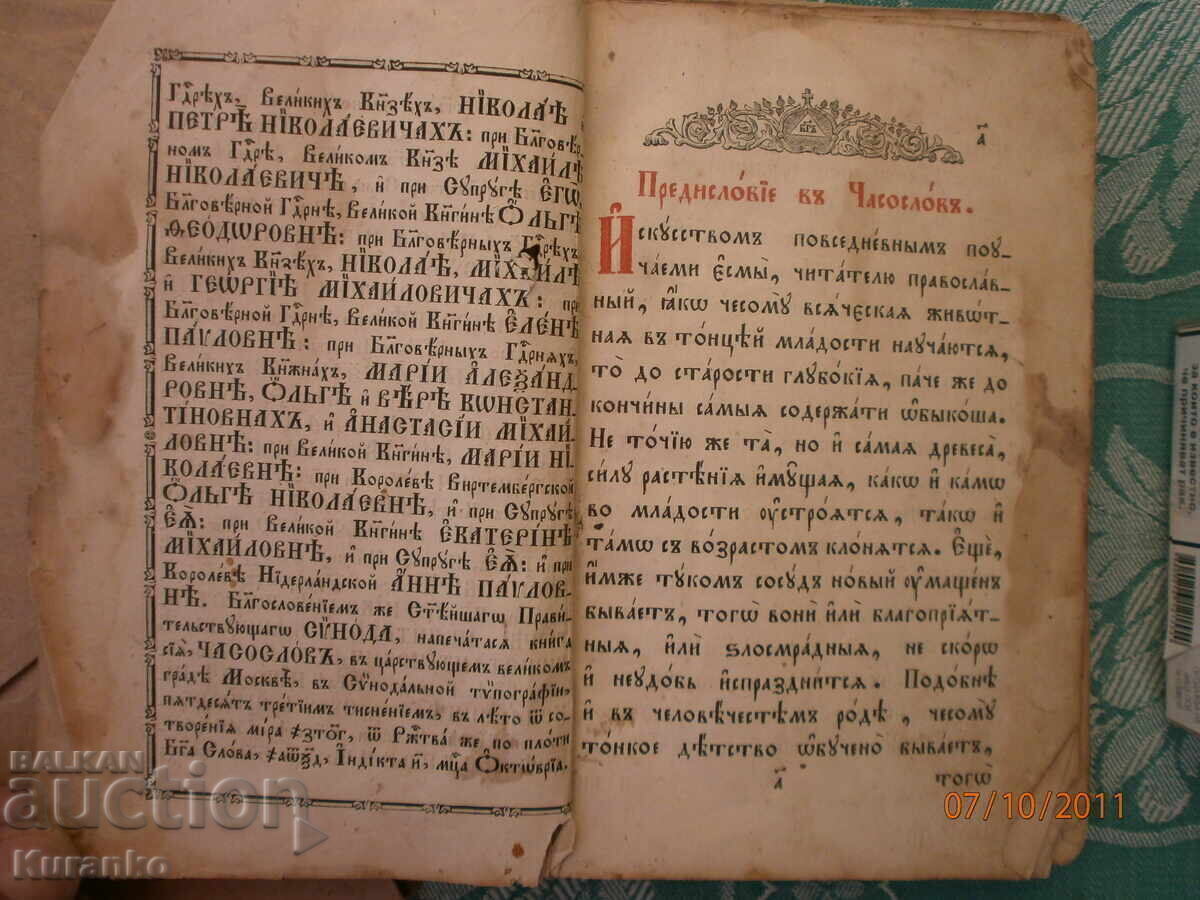 Гдⷭ҇рѣхъ, Вели́кихъ Кнѧ҃зѣхъ, НІКОЛА́Ѣ и҆
ПЕТРѢ̀ НІКОЛА́ЕВИЧАХЪ: при Бл҃говѣ́р-
номъ Гдⷭ҇рѣ, Вели́комъ Кнѧ҃зѣ МІХАИ́ЛѢ
НІКОЛА́ЕВИЧѢ, и҆ при Сꙋпрꙋ́гѣ Е҆гѡ̀,
Бл҃говѣ́рной Гдⷭ҇рнѣ, Вели́кой Кнѧги́нѣ О҆́ЛЬГѢ
Ѳ҆ЕО́ДѠРОВНѢ: при Бл҃говѣ́рныхъ Гдⷭ҇рѣхъ
Вели́кихъ Кнѧ҃зѣхъ, НІКОЛА́Ѣ, МІХАИ́ЛѢ
и҆ ГЕѠ́РГІѢ МІХА́ЙЛОВИЧАХЪ: при
Бл҃говѣ́рной Гдⷭ҇рнѣ, Вели́кой Кнѧги́нѣ Е҆ЛЕ́НѢ
ПА́ѴЛОВНѢ: при Бл҃говѣ́рныхъ Гдⷭ҇рнѧхъ,
Вели́кихъ Кнѧжна́хъ, МАРІ́И А҆ЛЕѮА́НД-
РОВНѢ, О҆́ЛЬГѢ и҆ ВѢ́РѢ КѠНСТАН-
ТІ́НОВНАХЪ, и҆ А҆НАСТАСІ́И МІХА́Й-
ЛОВНѢ: при Вели́кой Кнѧги́нѣ, МАРІ́И НІ-
КОЛА́ЕВНѢ: при Короле́вѣ Виртембе́ргской
О҆́ЛЬГѢ НІКОЛА́ЕВНѢ, и҆ при Сꙋпрꙋ́гѣ
Е҆Ѧ̀: при Вели́кой Кнѧги́нѣ Е҆КАТЕРІ́НѢ
МІХА́ЙЛОВНѢ, и҆ при Сꙋпрꙋ́гѣ Е҆ѧ̀: и҆ при
Короле́вѣ Нідерла́ндской А҆́ННѢ ПА́ѴЛОВ-
НѢ. Бл҃гослове́нїемъ же Ст҃ѣ́йшагѡ Прави́-
тельствꙋющагѡ СѴНО́ДА, напеча́тасѧ кни́га
сїѧ̀, ЧАСОСЛО́ВЪ, въ ца́рствꙋющемъ вели́комъ
гра́дѣ Москвѣ̀, въ Сѷнода́льной тѷпогра́фїи,
пѧтьдесѧ́тъ тре́тїимъ тисне́нїемъ, въ лѣ́то ѿ со-
творе́нїѧ мі́ра ҂зто҃г, ѿ Рж҃тва̀ же по пло́ти
Бг҃а Сло́ва, ҂аѡѯ҃д, І҆нді́кта и҃, мцⷭ҇а О҆ктѡ́врїа.
БГЪ
а҃
Предисло́вїе въ Часосло́въ.
И҆скꙋ́сствомъ повседне́внымъ поꙋ-
ча́еми є҆смы̀, чита́телю правосла́в-
ный, ꙗ҆́кѡ чесомꙋ̀ всѧ́ческаѧ живѡ́т-
наѧ въ то́нцѣй мла́дости наꙋча́ютсѧ,
то̀ до ста́рости глꙋбо́кїѧ, па́че же до
кончи́ны са́мыѧ содержа́ти ѡ҆быко́ша.
Не то́чїю же та̀, но и҆ са́маѧ древеса̀,
си́лꙋ расте́нїѧ и҆мꙋ̑щаѧ, ка́кѡ и҆ ка́мѡ
во мла́дости ᲂу҆стро́ѧтсѧ, та́кѡ и҆
та́мѡ съ во́зрастомъ клонѧ́тсѧ. Е҆щѐ,
и҆́мже тꙋ́комъ сосꙋ́дъ но́вый ᲂу҆ма́щенъ
быва́етъ, тогѡ̀ вонѝ и҆лѝ благопрїѧ́т-
ныѧ, и҆лѝ ѕлосмра́дныѧ, не ско́рѡ
и҆ неꙋдо́бь и҆спраздни́тсѧ. Подо́бнѣ
и҆ въ человѣ́честѣмъ ро́дѣ, чесомꙋ̀
то́нкое дѣ́тство ѡ҆бꙋ́чено быва́етъ,
а҃
тогѡ̀
BALKAN
auction
Kuranko
07/10/2011